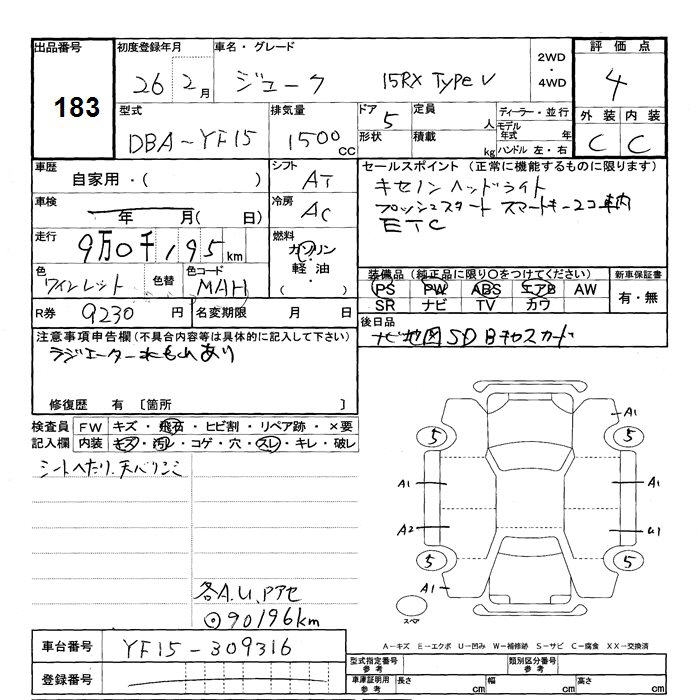 出品番号
183
初度登録年月
26 2月
車名・グレード
ジューク 15RX Type V
2WD
・
4WD
評価点
4
外装 内装
C C
型式
DBA-YF15
排気量
1500cc
ドア 5
形状
定員 人
積載 kg
ディーラー・並行
モデル年式 年
ハンドル 左・右
車歴
自家用・( )
シフト
AT
車検
年 月( 日)
冷房
AC
走行
9万0千195km
燃料
ガソリン
・
軽油
( )
色
ワインレット
色替
色コード
MAH
R券 9230円
名変期限 月 日
セールスポイント (正常に機能するものに限ります)
キセノンヘッドライト
プッシュスタート スマートキー2コ車内
ETC
装備品(純正品に限り〇をつけてください)
PS PW ABS エアB AW
SR ナビ TV カワ
新車保証書
有・無
後日品
ナビ地図SD
注意事項申告欄(不具合内容等は具体的に記入して下さい)
ラジエーター水もれあり
修復歴 有 〔箇所 〕
検査員記入欄
FW キズ・飛石・ヒビ割・リペア跡・×要
内装 キズ・汚レ・コゲ・穴・スレ・キレ・破レ
シートへたり.天バリシミ
各A.U.Pアセ
◎90196km
A1
5 5
A1 A1
A2 U1
5 5
A1
スペア
A-キズ E-エクボ U-凹み W-補修跡 S-サビ C-腐食 XX-交換済
車台番号 YF15-309316
登録番号
型式指定番号 参考
類別区分番号 参考
車庫証明用 参考
長さ cm
幅 cm
高さ cm